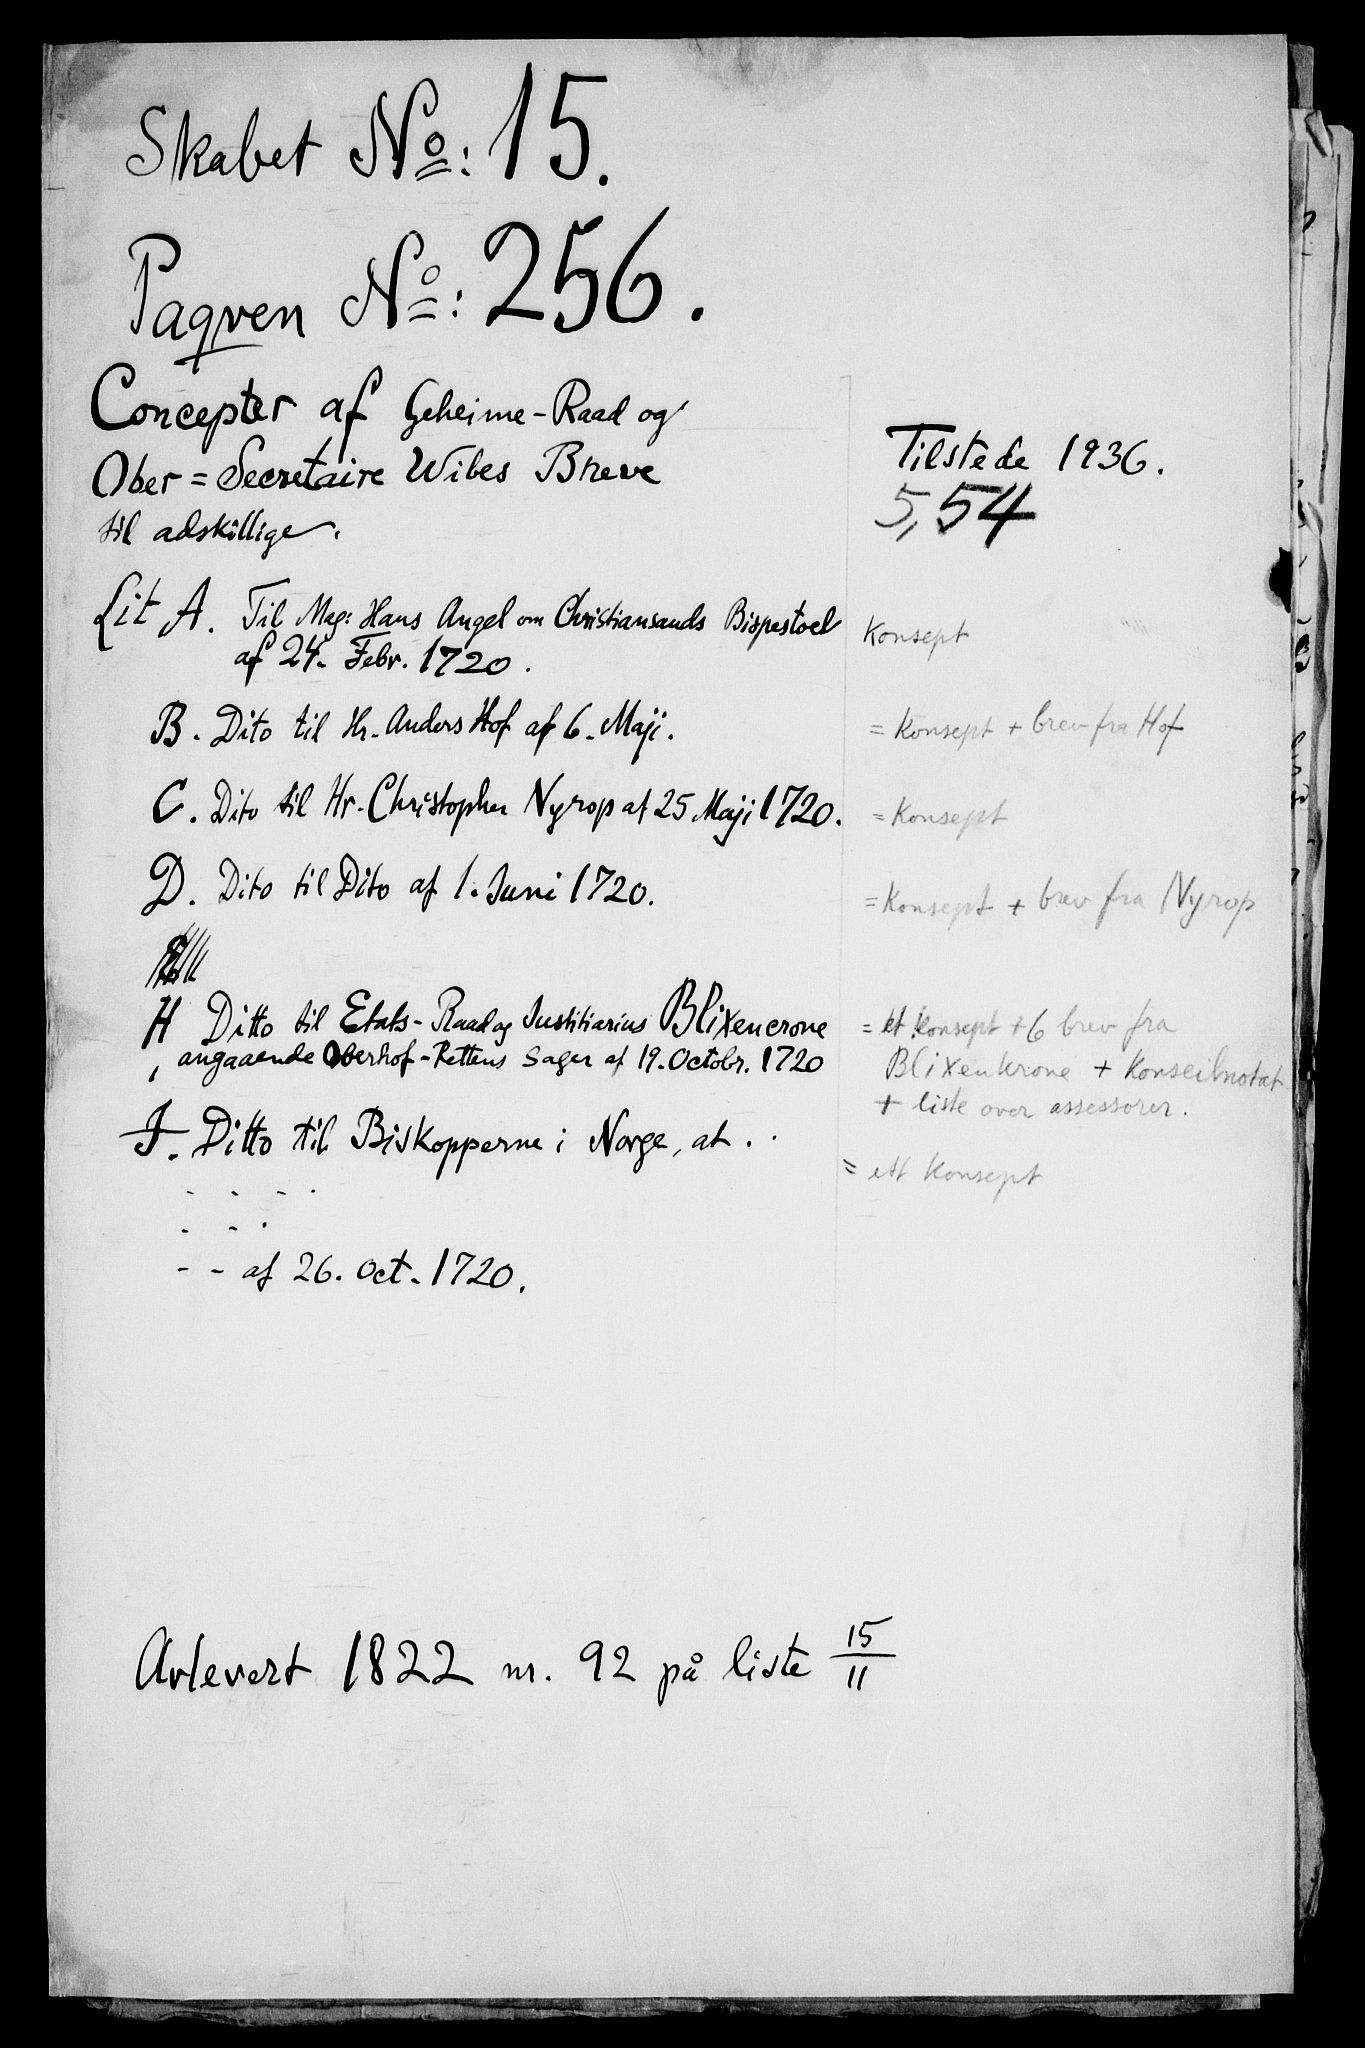 Skabet No: 15.
Paqven No: 256.
Concepter af Geheime-Raad og
Ober = Secretaire Wibes Breve
til adskillige.
Tilstede 1936.
5,54
Lit A. Til Mag: Hans Angel om Christiansands Bispestoel
af 24. Febr. 1720.
Konsept
B. Dito til Hr. Anders Hof af 6. Maji.
= Konsept + brev fra Hof
C. Dito til Hr. Christopher Nyrop af 25 Maji 1720.
= Konsept
D. Dito til Dito af 1. Juni 1720.
= Konsept + brev fra Nyrop
H Ditto til Etats-Raad og Justitiarius Blixencrone
, angaaende Oberhof-Rettens Sager af 19. Octobr. 1720
= et konsept + 6 brev fra
Blixenkrone + Konseilnotat
+ liste over assessorer.
I. Ditto til Biskopperne i Norge, at . .
- - - .
- - .
- - af 26. Oct. 1720.
= ett konsept
Avlevert 1822 nr. 92 på liste 15/11